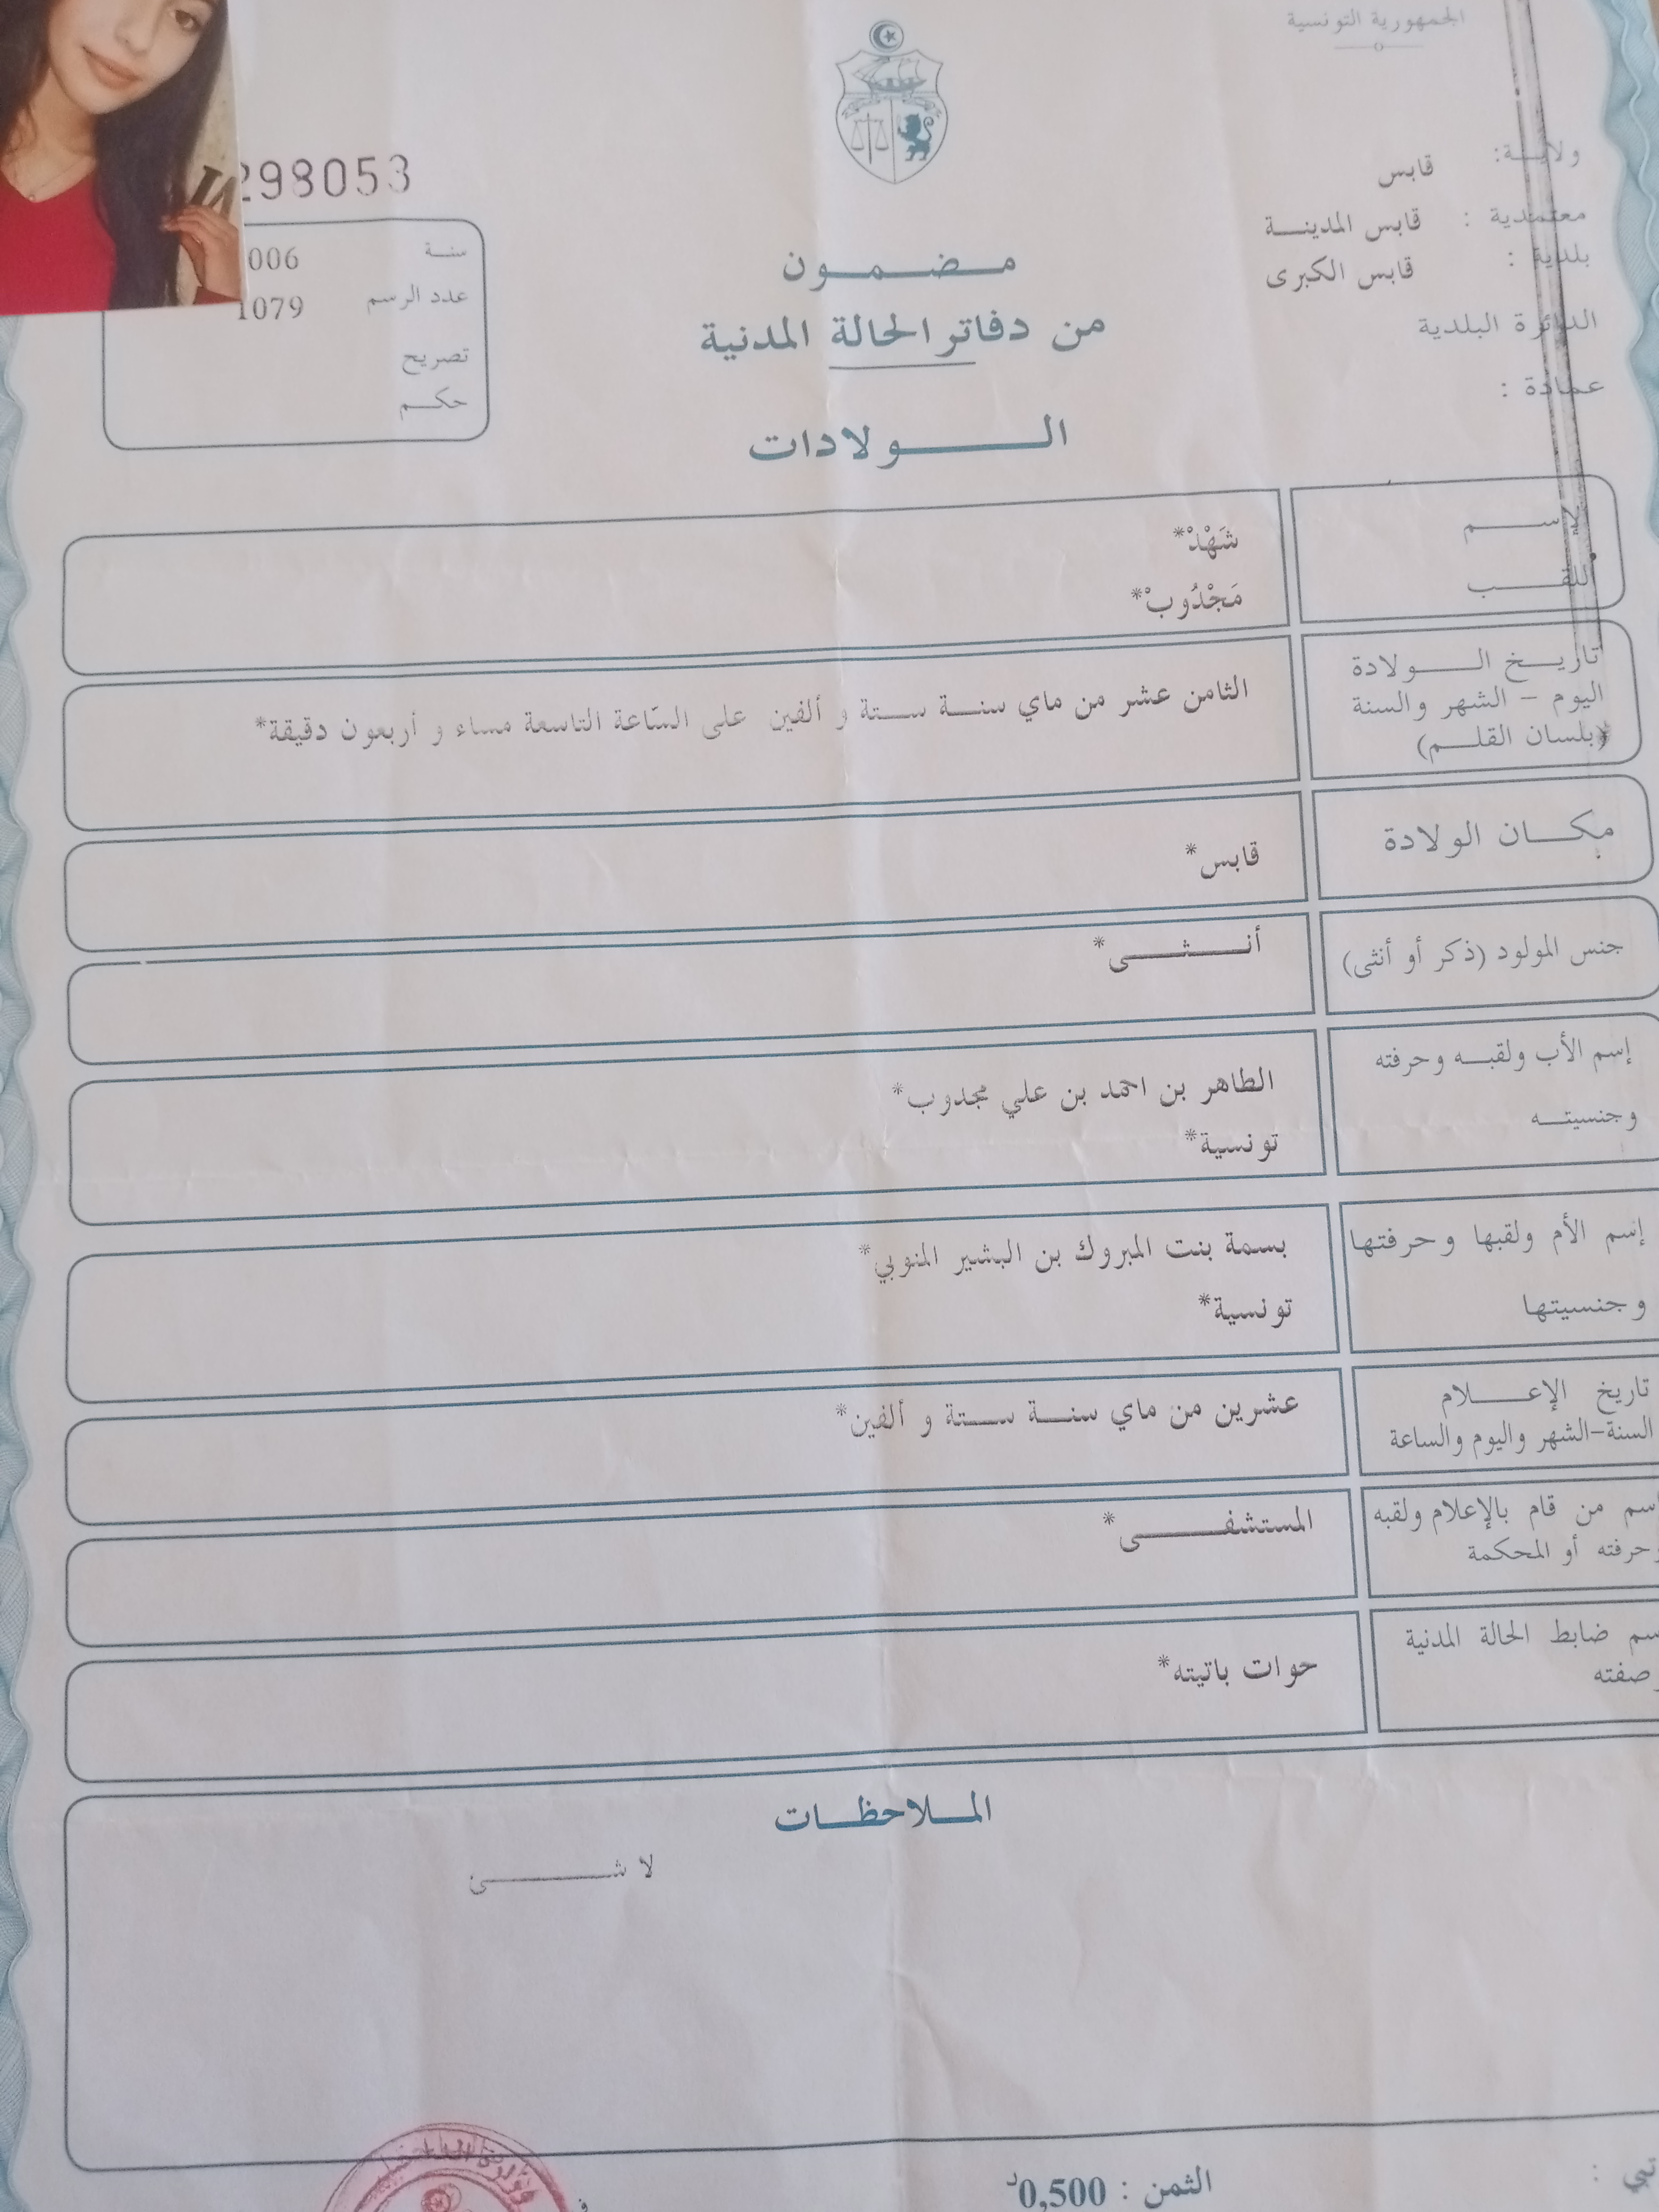 الجمهورية التونسية
ولايـــة: قابس
معتمدية : قابس المدينـــة
بلدية : قابس الكبرى
الدائرة البلدية
عمادة :
298053
سنـة 006
عدد الرسم 1079
تصريح
حكـــم
مـــضـــمـــون
من دفاتر الحالة المدنية
الـــــــولادات
الاســـــم شَهْدْ*
اللقـــب مَجْدُوبْ*
تاريـــخ الـــــولادة
اليوم – الشهر والسنة
(بلسان القلـــم)
الثامن عشر من ماي سنـــة ستـة و ألفين على السّاعة التاسعة مساء و أربعون دقيقة*
مكـــان الولادة قابس*
جنس المولود (ذكر أو أنثى) أنــــثــــى*
إسم الأب ولقبـــه وحرفته
وجنسيتـــه
الطاهر بن احمد بن علي مجدوب*
تونسية*
إسم الأم ولقبها وحرفتها
وجنسيتها
بسمة بنت المبروك بن البشير المنوبي*
تونسية*
تاريخ الإعـــــلام
السنة-الشهر واليوم والساعة
عشرين من ماي سنـــة ستـــة و ألفين*
إسم من قام بالإعلام ولقبه
وحرفته أو المحكمة
المستشفـــــــى*
إسم ضابط الحالة المدنية
وصفته
حوات باتيته*
المـــلاحظـــات
لا شـــــــــى
الثمن : 0,500د